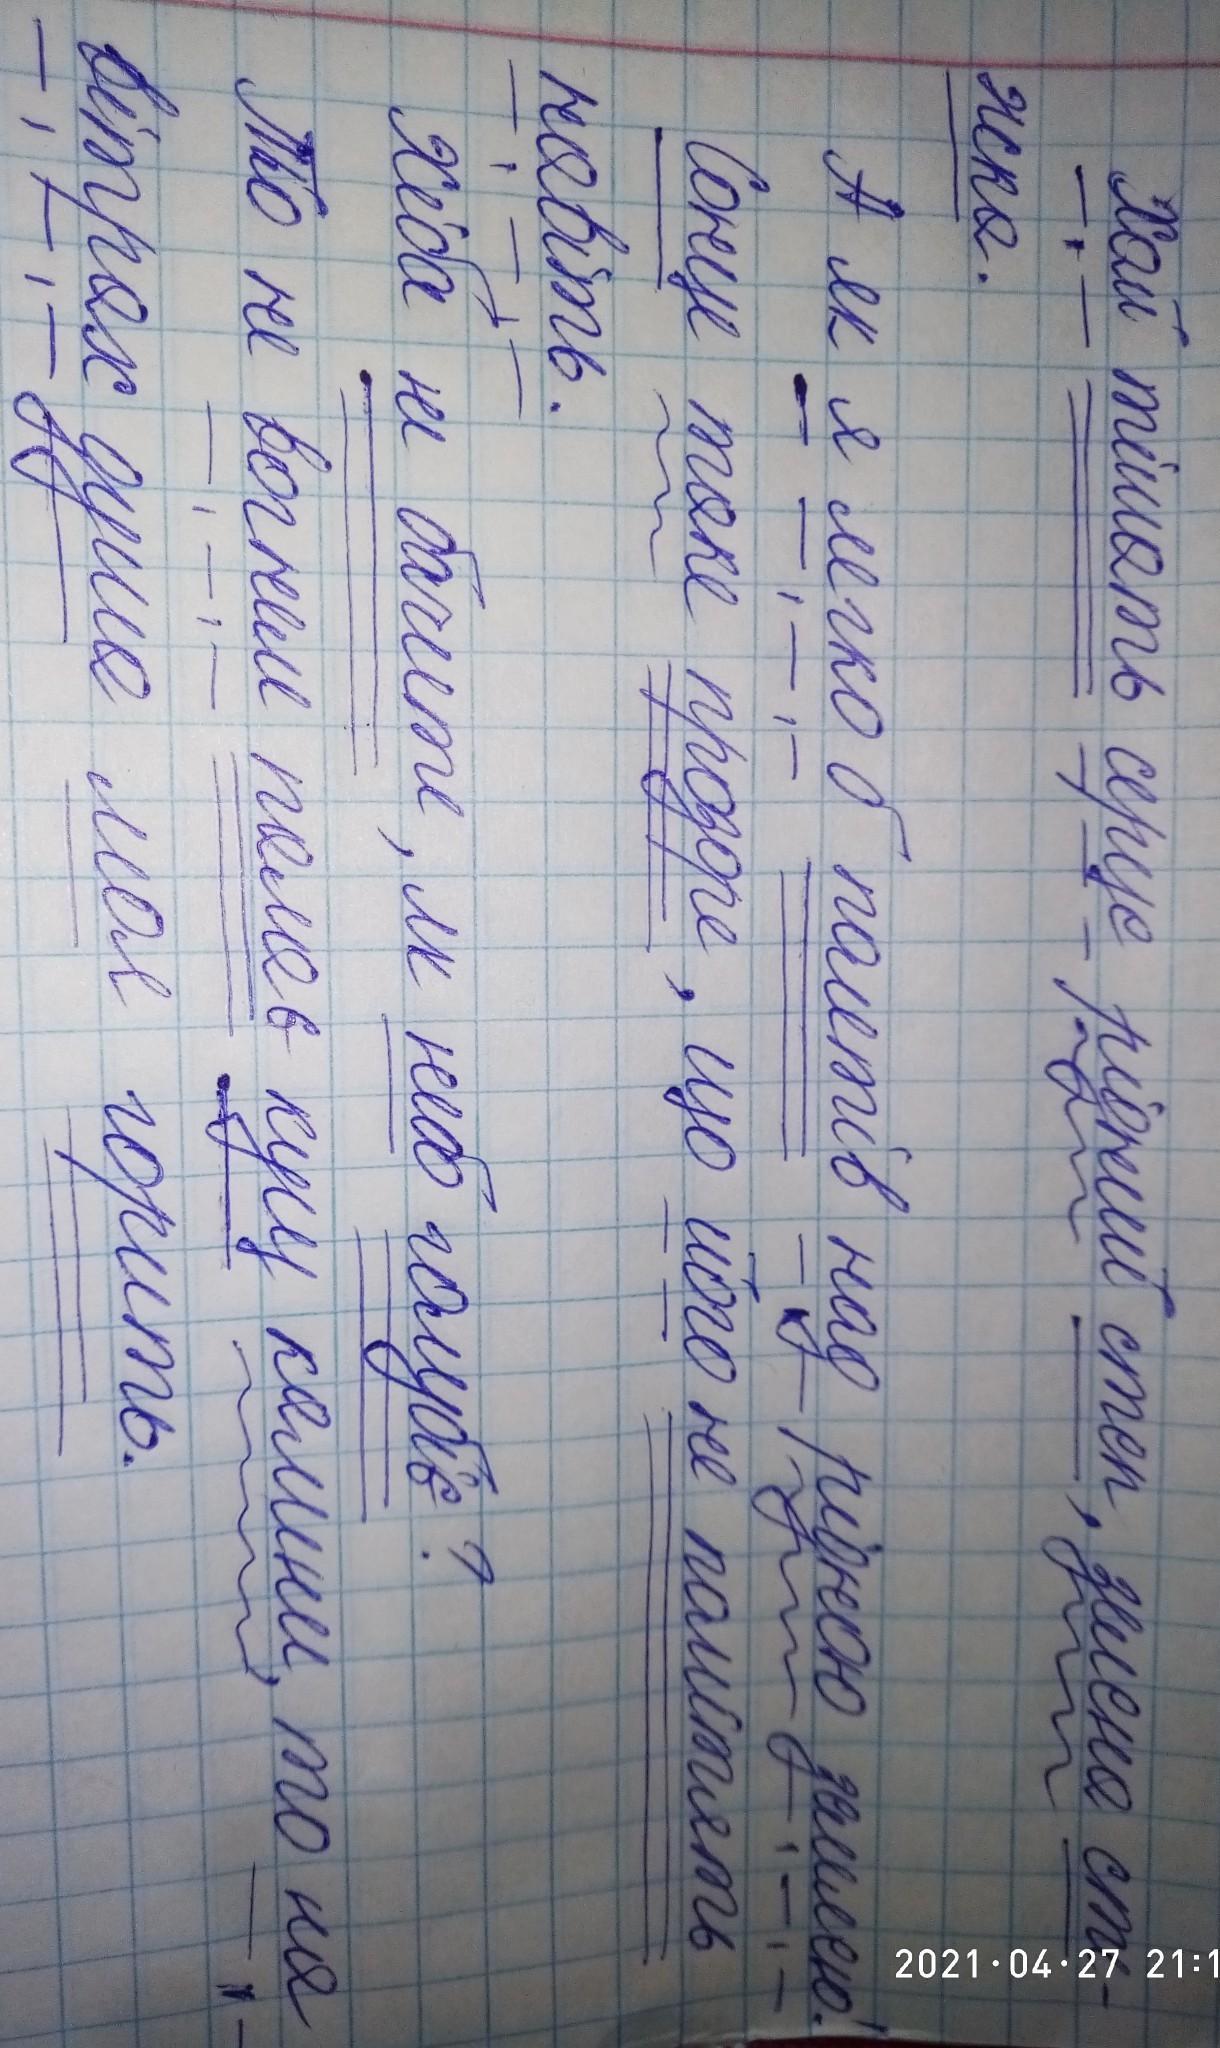 Хай тішать серце рідний степ, зелена сте-
жка.
А як я легко б полетів над рідною землею!
Сонце таке праве, що його не помічають
навіть.
Хіба не бачите, як небо голубіє?
То не вогнем палає кущ калини, то на
вітрах душа моя горить.
2021·04·27 21:1